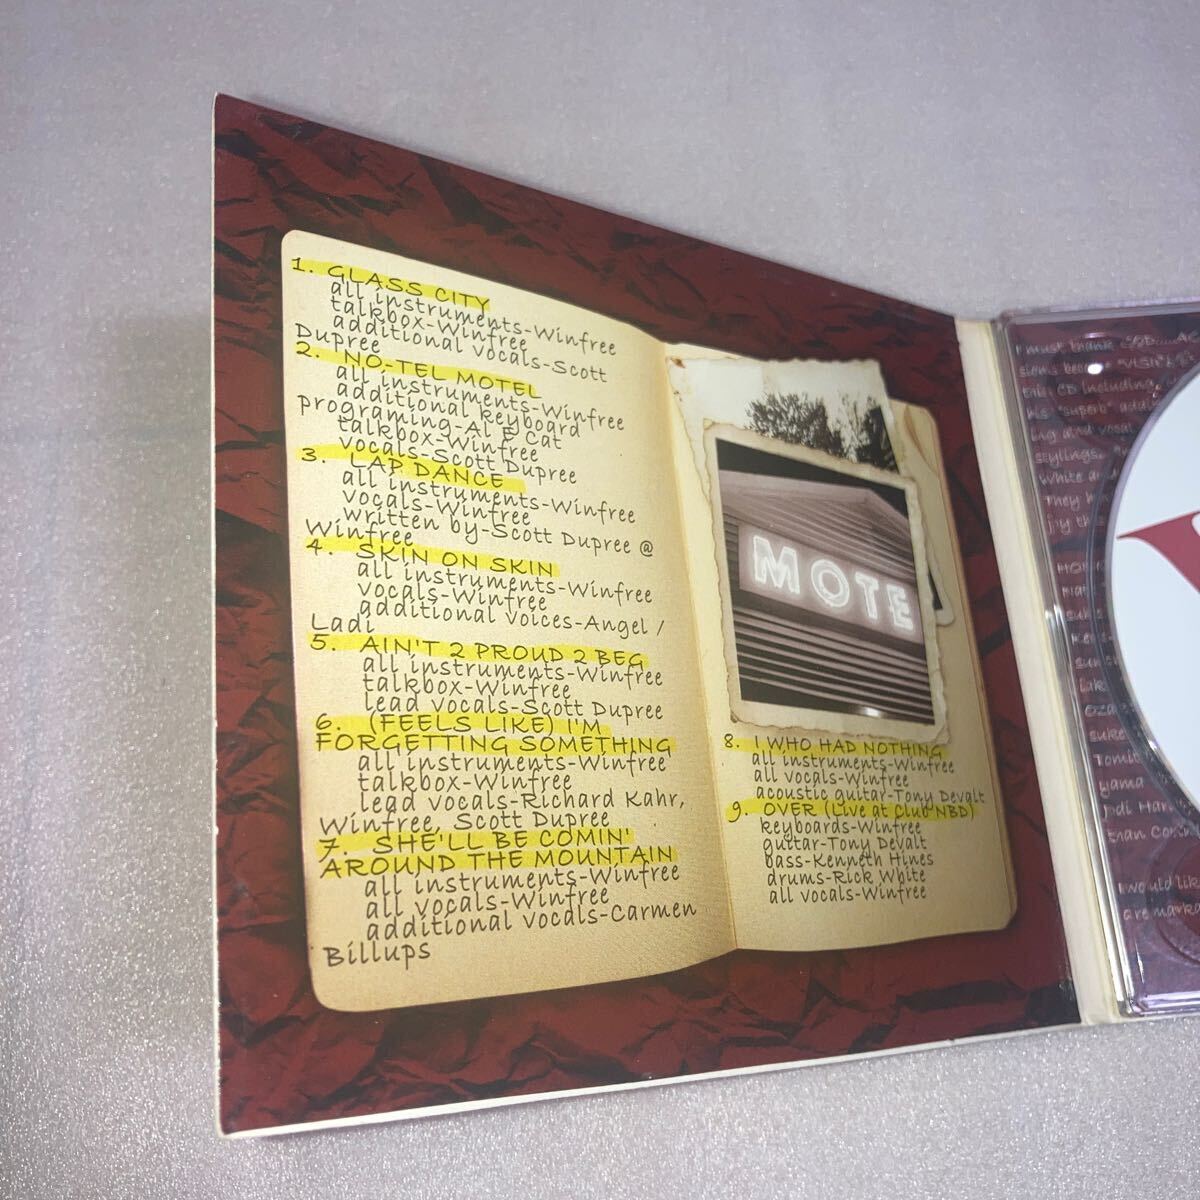 1. GLASS CITY
all instruments-Winfree
talkbox-Winfree
additional vocals-Scott
Dupree
2. NO-TEL MOTEL
all instruments-Winfree
additional keyboard
programing-Al E Cat
talkbox-Winfree
vocals-Scott Dupree
3. LAP DANCE
all instruments-Winfree
vocals-Winfree
written by-Scott Dupree @
Winfree
4. SKIN ON SKIN
all instruments-Winfree
vocals-Winfree
additional voices-Angel /
Ladi
5. AIN'T 2 PROUD 2 BEG
all instruments-Winfree
talkbox-Winfree
lead vocals-Scott Dupree
6. (FEELS LIKE) I'M
FORGETTING SOMETHING
all instruments-Winfree
talkbox-Winfree
lead vocals-Richard Kahr,
Winfree, Scott Dupree
7. SHE'LL BE COMIN'
AROUND THE MOUNTAIN
all instruments-Winfree
all vocals-Winfree
additional vocals-Carmen
Billups
MOTE
8. I WHO HAD NOTHING
all instruments-Winfree
all vocals-Winfree
acoustic guitar-Tony Devalt
9. OVER (Live at Club NBD)
keyboards-Winfree
guitar-Tony Devalt
bass-Kenneth Hines
drums-Rick White
all vocals-Winfree
I must thank
this CD including
his "superb"
ing and vocal
stylings.
White
They
I would like
are